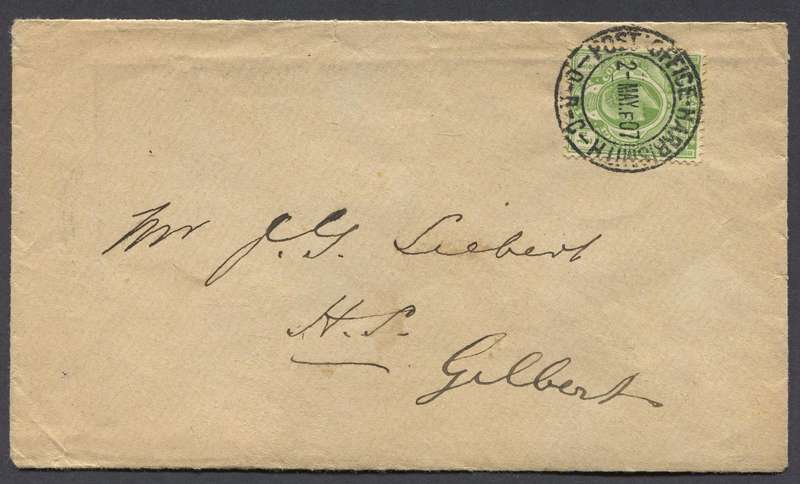 POST OFFICE-HARRISMITH-O-R-C-
2- MAY.E07
Mr J. G. Siebert
H. S.
Gilbert